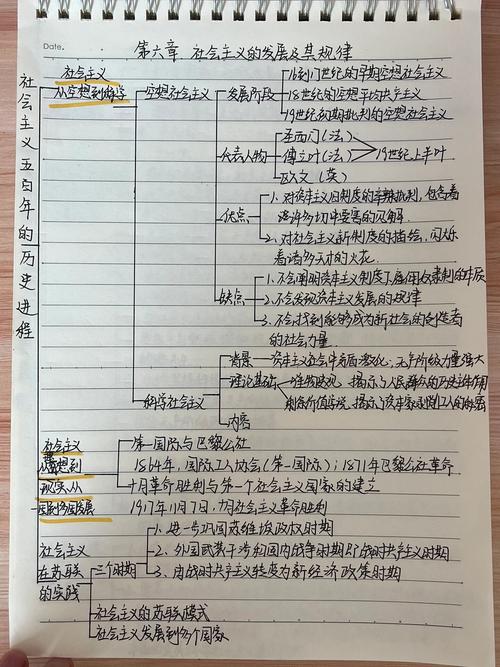 Date.
第六章 社会主义的发展及其规律
社会主义五百年的历史进程
社会主义
从空想到科学
空想社会主义
发展阶段
16到17世纪的早期空想社会主义
18世纪的空想平均共产主义
19世纪初期批判的空想社会主义
代表人物
圣西门(法)
傅立叶(法)
欧文(英)
19世纪上半叶
优点
1. 对资本主义旧制度的辛辣批判,包含着
许多切中要害的见解.
2. 对社会主义新制度的描绘,闪烁
着诸多天才的火花.
缺点
1. 不会阐明资本主义制度下雇佣奴隶制的本质
2. 不会发现资本主义发展的规律
3. 不会找到能够成为新社会的创造者
的社会力量.
科学社会主义
背景
资本主义社会矛盾激化,无产阶级力量强大
理论基础
唯物史观,揭示了人民群众的历史主体作用
剩余价值学说,揭示了资本家剥削工人的秘密
内容
社会主义
从理想到
现实、从
一国到多国发展
第一国际与巴黎公社
1864年,国际工人协会(第一国际);1871年巴黎公社革命
十月革命胜利与第一个社会主义国家的建立
1917年11月7日,十月社会主义革命胜利
社会主义
在苏联
的实践
三个时期
1. 进一步巩固苏维埃政权时期
2. 外国武装干涉和国内战争时期即战时共产主义时期
3. 由战时共产主义转变为新经济政策时期
社会主义的苏联模式
社会主义发展到多个国家